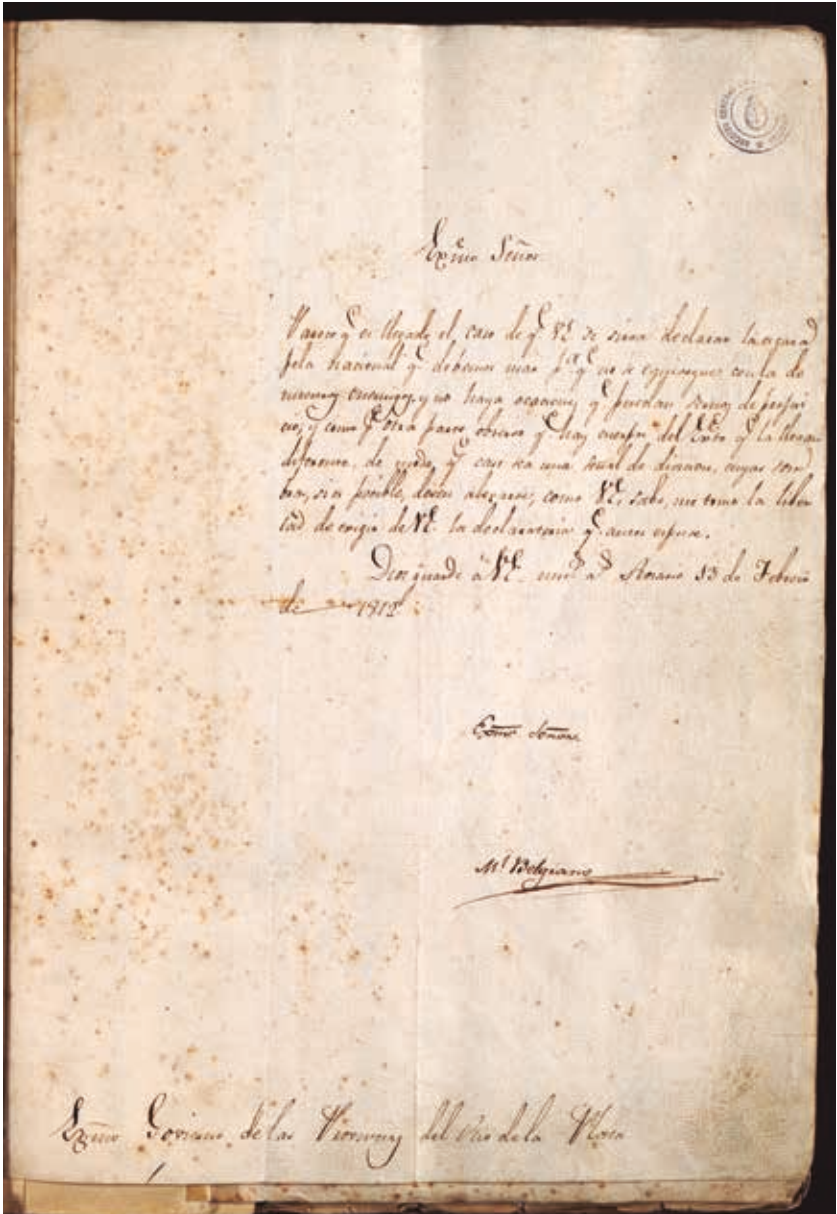 Exmo Señor
Parece q.e es llegado el caso de q.e V.E. se sirva declarar la escara
pela nacional q.e debemos usar p.a q.e no se equivoque con la de
nuestros enemigos, y no haya ocasiones q.e puedan sernos de perjui
cio; y como p.r otra parte observo q.e hay cuerpos del Exto q.e la llevan
diferente, de modo q.e casi sea una señal de division, cuyas som
bras, si es posible, deben alejarse, como V.E. sabe, me tomo la liber
tad de exigir de V.E. la declaratoria q.e antes expuse.
Dios guarde à V.E. m.s a.s Rosario 13 de Febrero
de 1812
Exmo Señor
M.l Belgrano
Exmo Govierno de las Provincias del Rio de la Plata